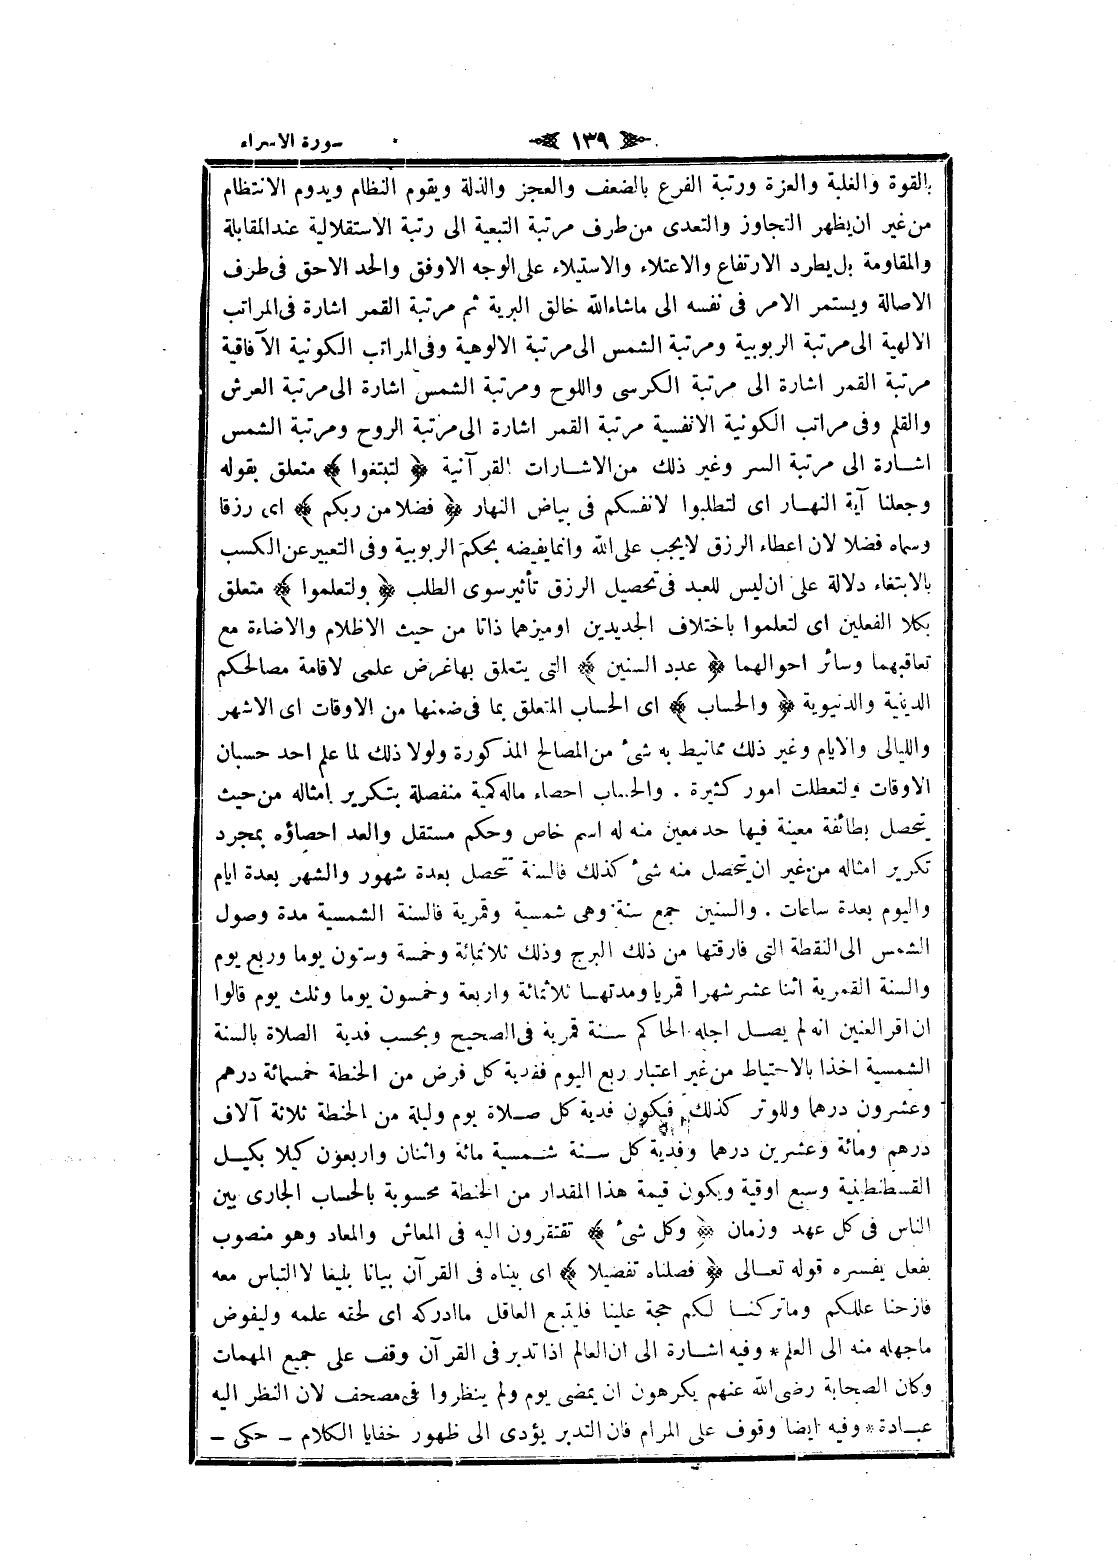 سورة الاسراء ١٣٩
بالقوة والغلبة والعزة ورتبة الفرع بالضعف والعجز والذلة ويقوم النظام ويدوم الانتظام
من غير ان يظهر التجاوز والتعدى من طرف مرتبة التبعية الى رتبة الاستقلالية عند المقابلة
والمقاومة بل يطرد الارتفاع والاعتلاء والاستيلاء على الوجه الاوفق والحد الاحق فى طرف
الاصالة ويستمر الامر فى نفسه الى ماشاء الله خالق البرية ثم مرتبة القمر اشارة فى المراتب
الالهية الى مرتبة الربوبية ومرتبة الشمس الى مرتبة الالوهية وفى المراتب الكونية الآفاقية
مرتبة القمر اشارة الى مرتبة الكرسى واللوح ومرتبة الشمس اشارة الى مرتبة العرش
والقلم وفى مراتب الكونية الانفسية مرتبة القمر اشارة الى مرتبة الروح ومرتبة الشمس
اشارة الى مرتبة السر وغير ذلك من الاشارات القرآنية ﴿ لتبتغوا ﴾ متعلق بقوله
وجعلنا آية النهار اى لتطلبوا لانفسكم فى بياض النهار ﴿ فضلا من ربكم ﴾ اى رزقا
وسماه فضلا لان اعطاء الرزق لايجب على الله وانما يفيضه بحكم الربوبية وفى التعبير عن الكسب
بالابتغاء دلالة على ان ليس للعبد فى تحصيل الرزق تأثير سوى الطلب ﴿ ولتعلموا ﴾ متعلق
بكلا الفعلين اى لتعلموا باختلاف الجديدين اوميزهما ذاتا من حيث الاظلام والاضاءة مع
تعاقبهما وسائر احوالهما ﴿ عدد السنين ﴾ التى يتعلق بها غرض علمى لاقامة مصالحكم
الدينية والدنيوية ﴿ والحساب ﴾ اى الحساب المتعلق بما فى ضمنها من الاوقات اى الاشهر
والليالى والايام وغير ذلك ممانيط به شئ من المصالح المذكورة ولولا ذلك لما علم احد حسبان
الاوقات ولتعطلت امور كثيرة . والحساب احصاء ماله كمية منفصلة بتكرير امثاله من حيث
يتحصل بطائفة معينة فيها حد معين منه له اسم خاص وحكم مستقل والعد احصاؤه بمجرد
تكرير امثاله من غير ان يتحصل منه شئ كذلك فالسنة تتحصل بعدة شهور والشهر بعدة ايام
واليوم بعدة ساعات . والسنين جمع سنة وهى شمسية وقمرية فالسنة الشمسية مدة وصول
الشمس الى النقطة التى فارقتها من ذلك البرج وذلك ثلاثمائة وخمسة وستون يوما وربع يوم
والسنة القمرية اثنا عشر شهرا قمريا ومدتها ثلاثمائة واربعة وخمسون يوما وثلث يوم قالوا
ان اقر العنين انه لم يصل اجله الحاكم سنة قمرية فى الصحيح وبحسب فدية الصلاة بالسنة
الشمسية اخذا بالاحتياط من غير اعتبار ربع اليوم ففدية كل فرض من الحنطة خمسمائة درهم
وعشرون درهما وللوتر كذلك فيكون فدية كل صلاة يوم وليلة من الحنطة ثلاثة آلاف
درهم ومائة وعشرين درهما وفدية كل سنة شمسية مائة واثنان واربعون كيلا بكيل
القسطنطينية وسبع اوقية ويكون قيمة هذا المقدار من الحنطة محسوبة بالحساب الجارى بين
الناس فى كل عهد وزمان ﴿ وكل شئ ﴾ تفتقرون اليه فى المعاش والمعاد وهو منصوب
بفعل يفسره قوله تعالى ﴿ فصلناه تفصيلا ﴾ اى بيناه فى القرآن بيانا بليغا لا التباس معه
فازحنا عللكم وماتركنا لكم حجة علينا فليتبع العاقل ماادركه اى لحقه علمه وليفوض
ماجهله منه الى العلم * وفيه اشارة الى ان العالم اذا تدبر فى القرآن وقف على جميع المهمات
وكان الصحابة رضى الله عنهم يكرهون ان يمضى يوم ولم ينظروا فى مصحف لان النظر اليه
عبادة * وفيه ايضا وقوف على المرام فان التدبر يؤدى الى ظهور خفايا الكلام ـ حكى ـ